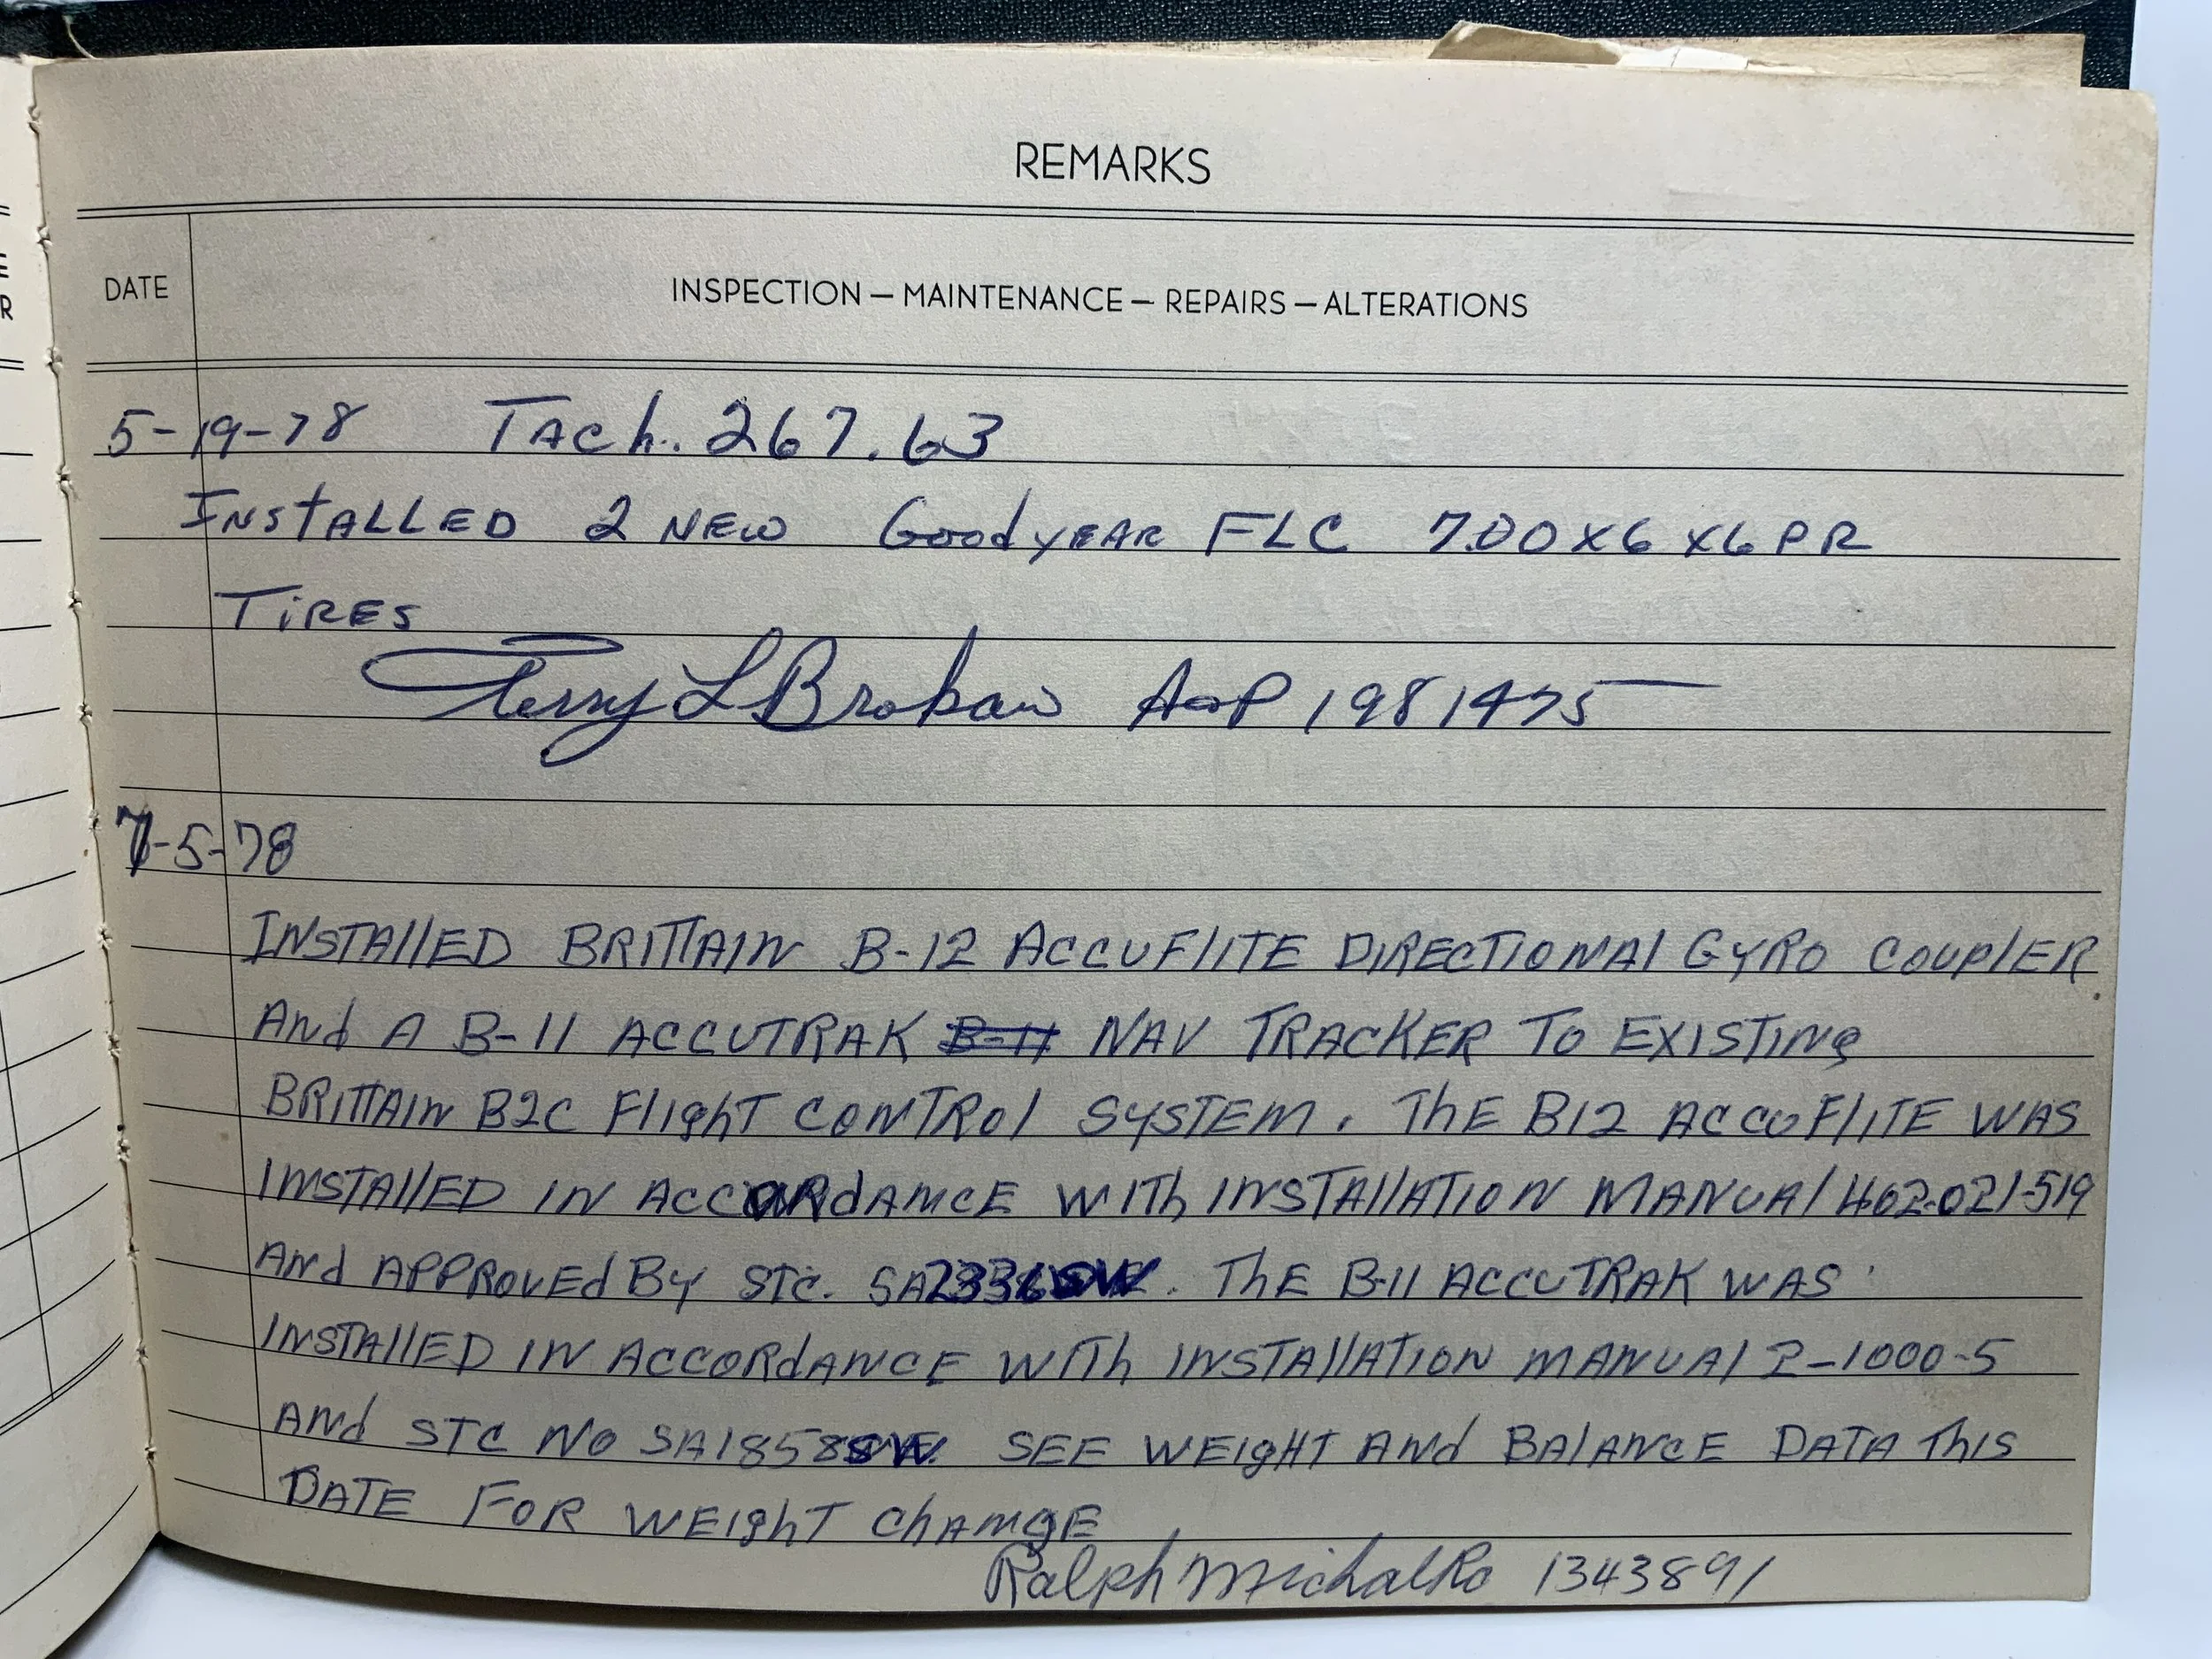 REMARKS
DATE INSPECTION — MAINTENANCE — REPAIRS — ALTERATIONS
5-19-78 TACh. 267.63
INSTALLED 2 NEW GoodyEAR FLC 7.00X6 X6PR
TIRES
Terry L Brokaw A&P 1981475
7-5-78
INSTAllED BRITTAIN B-12 ACCUFlITE DIRECTIONAl GYRO COUPlER
ANd A B-11 ACCUTRAK B-11 NAV TRACKER TO EXISTING
BRITTAIN B2C FlighT CONTROl SYSTEM. ThE B12 ACCUFlITE WAS
INSTAllED IN ACCORdANCE WITh INSTAllATION MANUAl 402-021-519
ANd APPROVEd By STC. SA2336SW. ThE B-11 ACCUTRAK WAS
INSTAllED IN ACCORdANCE WITh INSTAllATION MANUAl 2-1000-5
ANd STC NO SA1858SW. SEE WEIghT ANd BAlANCE DATA ThIS
DATE FOR WEIghT ChANgE
Ralph Michalko 1343891
E
R